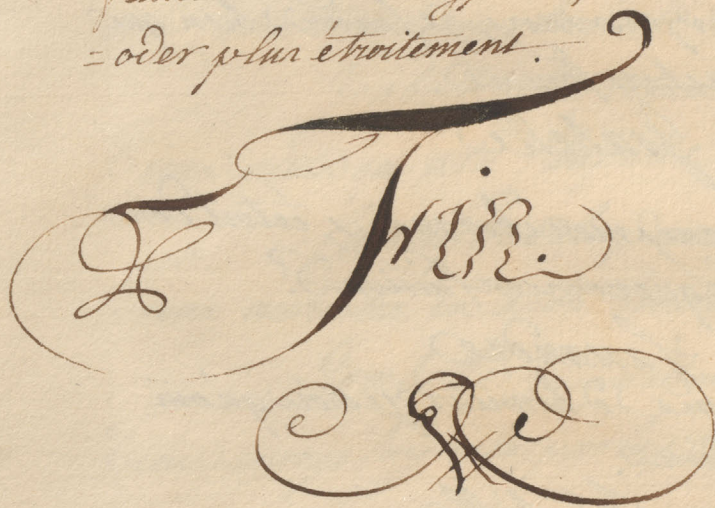 =oder plus étroitement.
Fin.